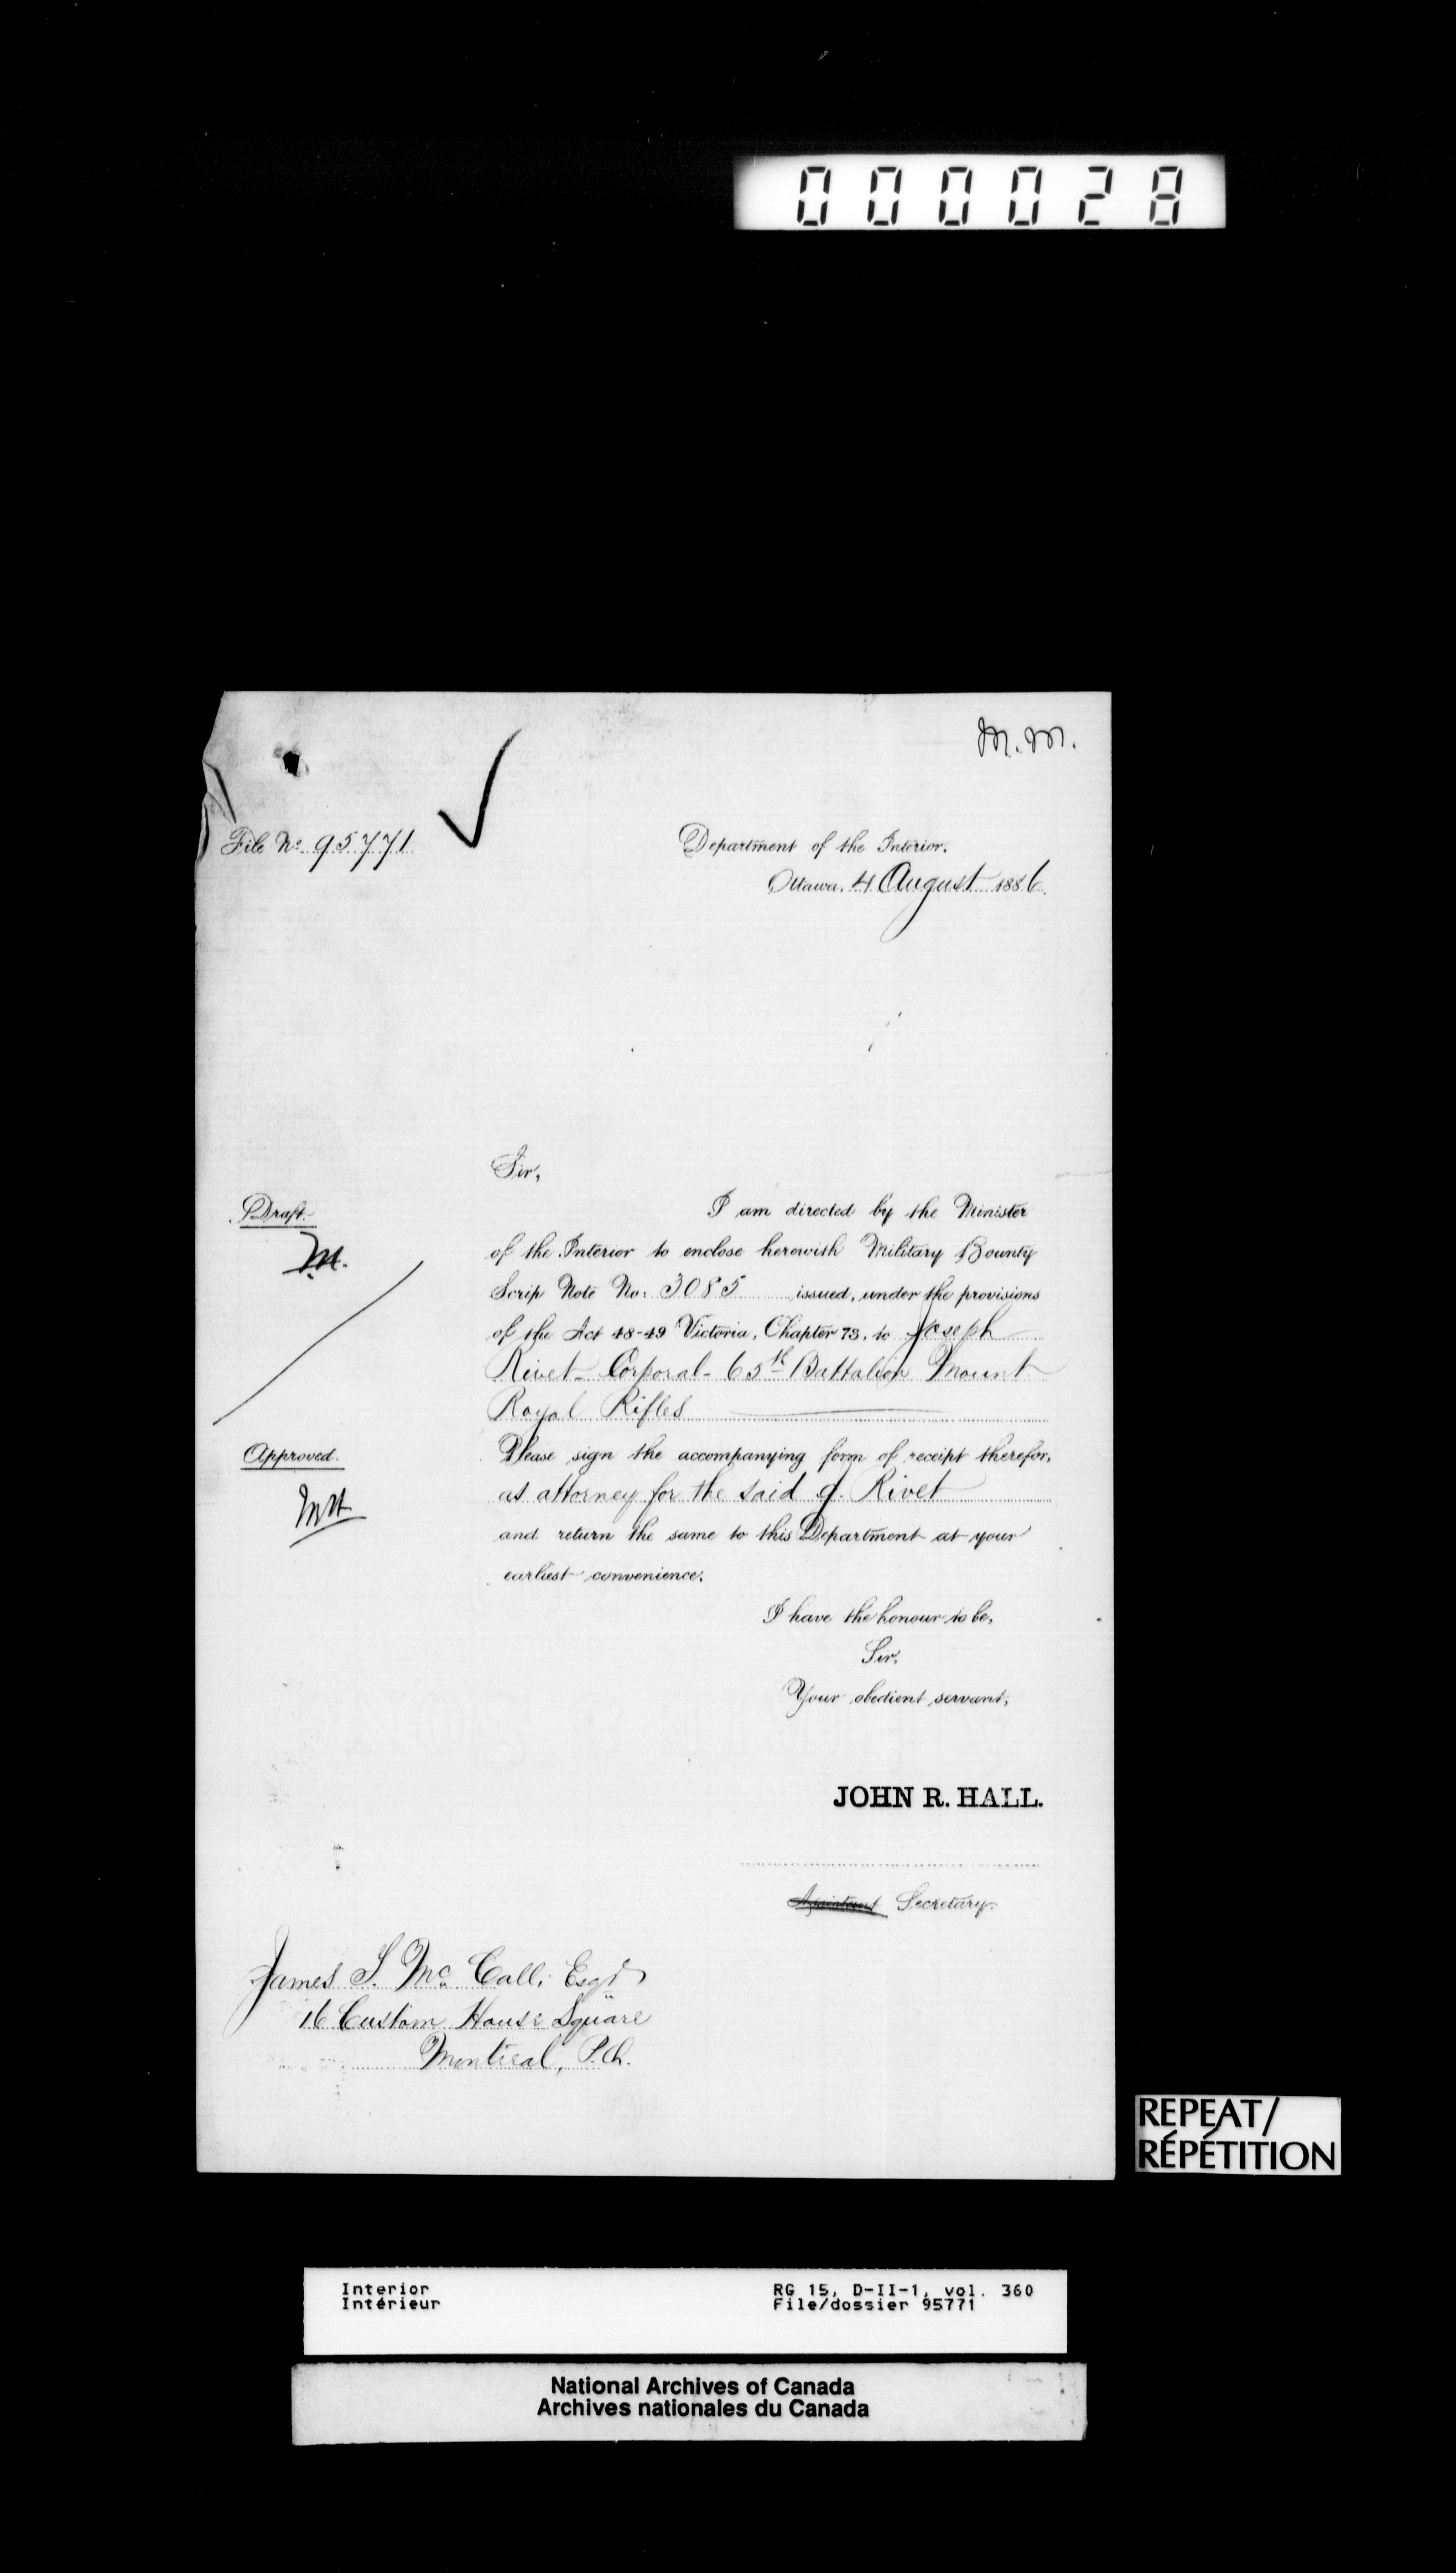 000028
M.M.
File No. 95771
Department of the Interior.
Ottawa, 4 August 1886.
Sir,
Draft.
M.
I am directed by the Minister
of the Interior to enclose herewith Military Bounty
Scrip Note No: 3085 issued, under the provisions
of the Act 48-49 Victoria, Chapter 73, to Joseph
Rivet - Corporal - 65th Battalion Mount
Royal Rifles
Approved.
Please sign the accompanying form of receipt therefor,
as attorney for the said J. Rivet
and return the same to this Department at your
earliest convenience.
I have the honour to be,
Sir,
Your obedient servant,
JOHN R. HALL.
Assistant Secretary.
James S. McCall, Esqr
16 Custom House Square
Montreal, P.Q.
REPEAT/
RÉPÉTITION
Interior
Intérieur
RG 15, D-II-1, vol. 360
File/dossier 95771
National Archives of Canada
Archives nationales du Canada